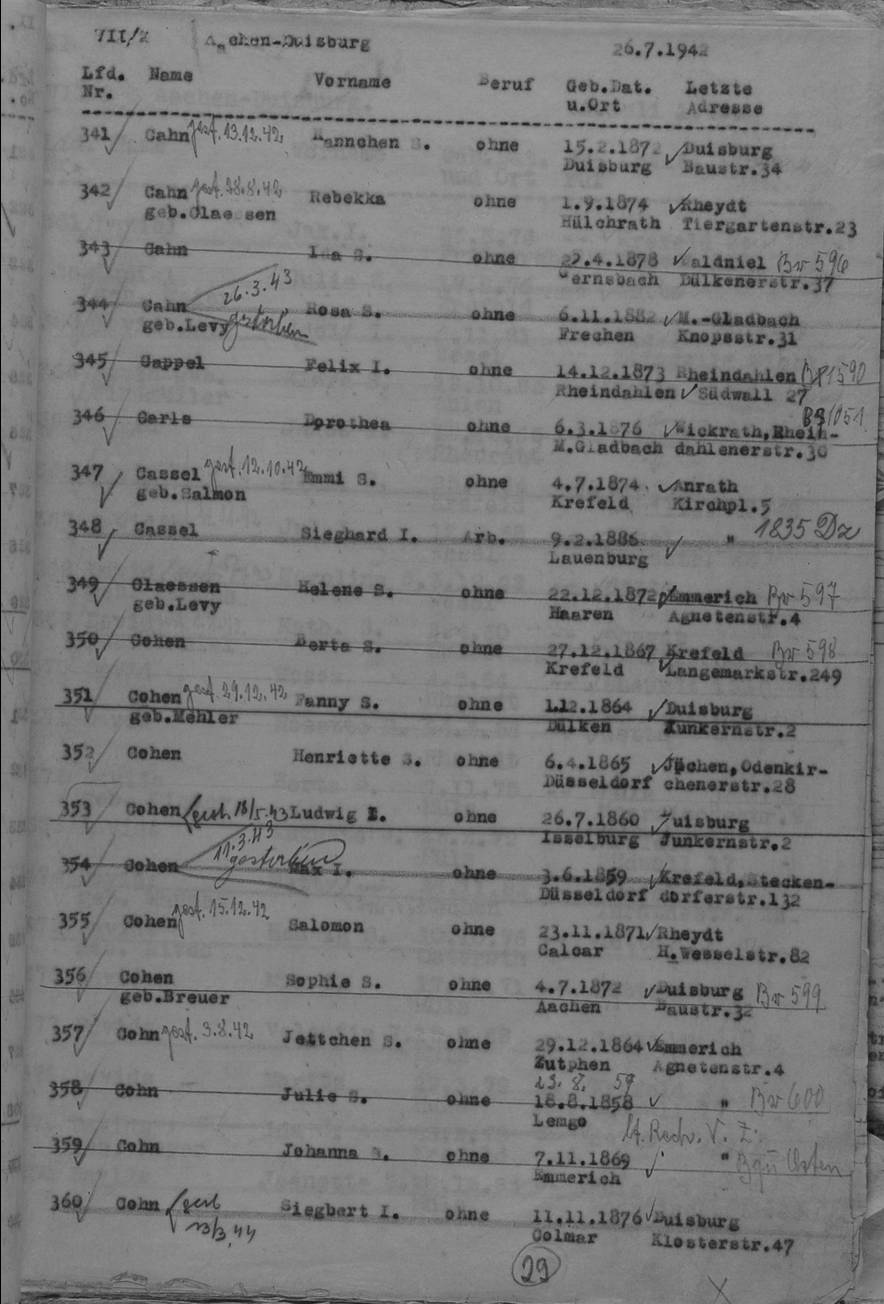 VII/2 Aachen-Duisburg 26.7.1942
Lfd. Name Vorname Beruf Geb.Dat. Letzte
Nr. u.Ort Adresse
341 Cahn gest. 13.12.42 Hannchen S. ohne 15.2.1872 Duisburg
Duisburg Baustr.34
342 Cahn gest. 28.8.42 Rebekka ohne 1.9.1874 Rheydt
geb.Claessen Hülchrath Tiergartenstr.23
343 Cahn Ida S. ohne 22.4.1878 Waldniel Bv 596
Gernsbach Dülkenerstr.37
344 Cahn 26.3.43 Rosa S. ohne 6.11.1882 M.-Gladbach
geb.Levy gestorben Frechen Knopsstr.31
345 Cappel Felix I. ohne 14.12.1873 Rheindahlen 1590
Rheindahlen Südwall 27
346 Carls Dorothea ohne 6.3.1876 Wickrath,Rhein- 1051
M.Gladbach dahlenerstr.30
347 Cassel gest. 12.10.42 Emmi S. ohne 4.7.1874 Anrath
geb.Salmon Krefeld Kirchpl.5
348 Cassel Sieghard I. Arb. 9.2.1886 " 1835 Dz
Lauenburg
349 Claessen Helene S. ohne 22.12.1872 Emmerich Bv 597
geb.Levy Haaren Agnetenstr.4
350 Cohen Berta S. ohne 27.12.1867 Krefeld Bv 598
Krefeld Langemarkstr.249
351 Cohen gest. 29.12.42 Fanny S. ohne 1.12.1864 Duisburg
geb.Mehler Dülken Junkernstr.2
352 Cohen Henriette S. ohne 6.4.1865 Jüchen,Odenkir-
Düsseldorf chenerstr.28
353 Cohen gest. 18/5.43 Ludwig I. ohne 26.7.1860 Duisburg
Isselburg Junkernstr.2
354 Cohen 11.3.43 gestorben Max I. ohne 3.6.1859 Krefeld,Stecken-
Düsseldorf dorferstr.132
355 Cohen gest. 15.12.42 Salomon ohne 23.11.1871 Rheydt
Calcar H.Wesselstr.82
356 Cohen Sophie S. ohne 4.7.1872 Duisburg Bv 599
geb.Breuer Aachen Baustr.32
357 Cohn gest. 3.8.42 Jettchen S. ohne 29.12.1864 Emmerich
Zutphen Agnetenstr.4
23.8. 59
358 Cohn Julie S. ohne 18.8.1858 " Bv 600
Lemgo
lt. Rech. V. Z.
359 Cohn Johanna S. ohne 7.11.1869 "
Emmerich
360 Cohn gest Siegbert I. ohne 11.11.1876 Duisburg
13/3.44 Colmar Klosterstr.47
29